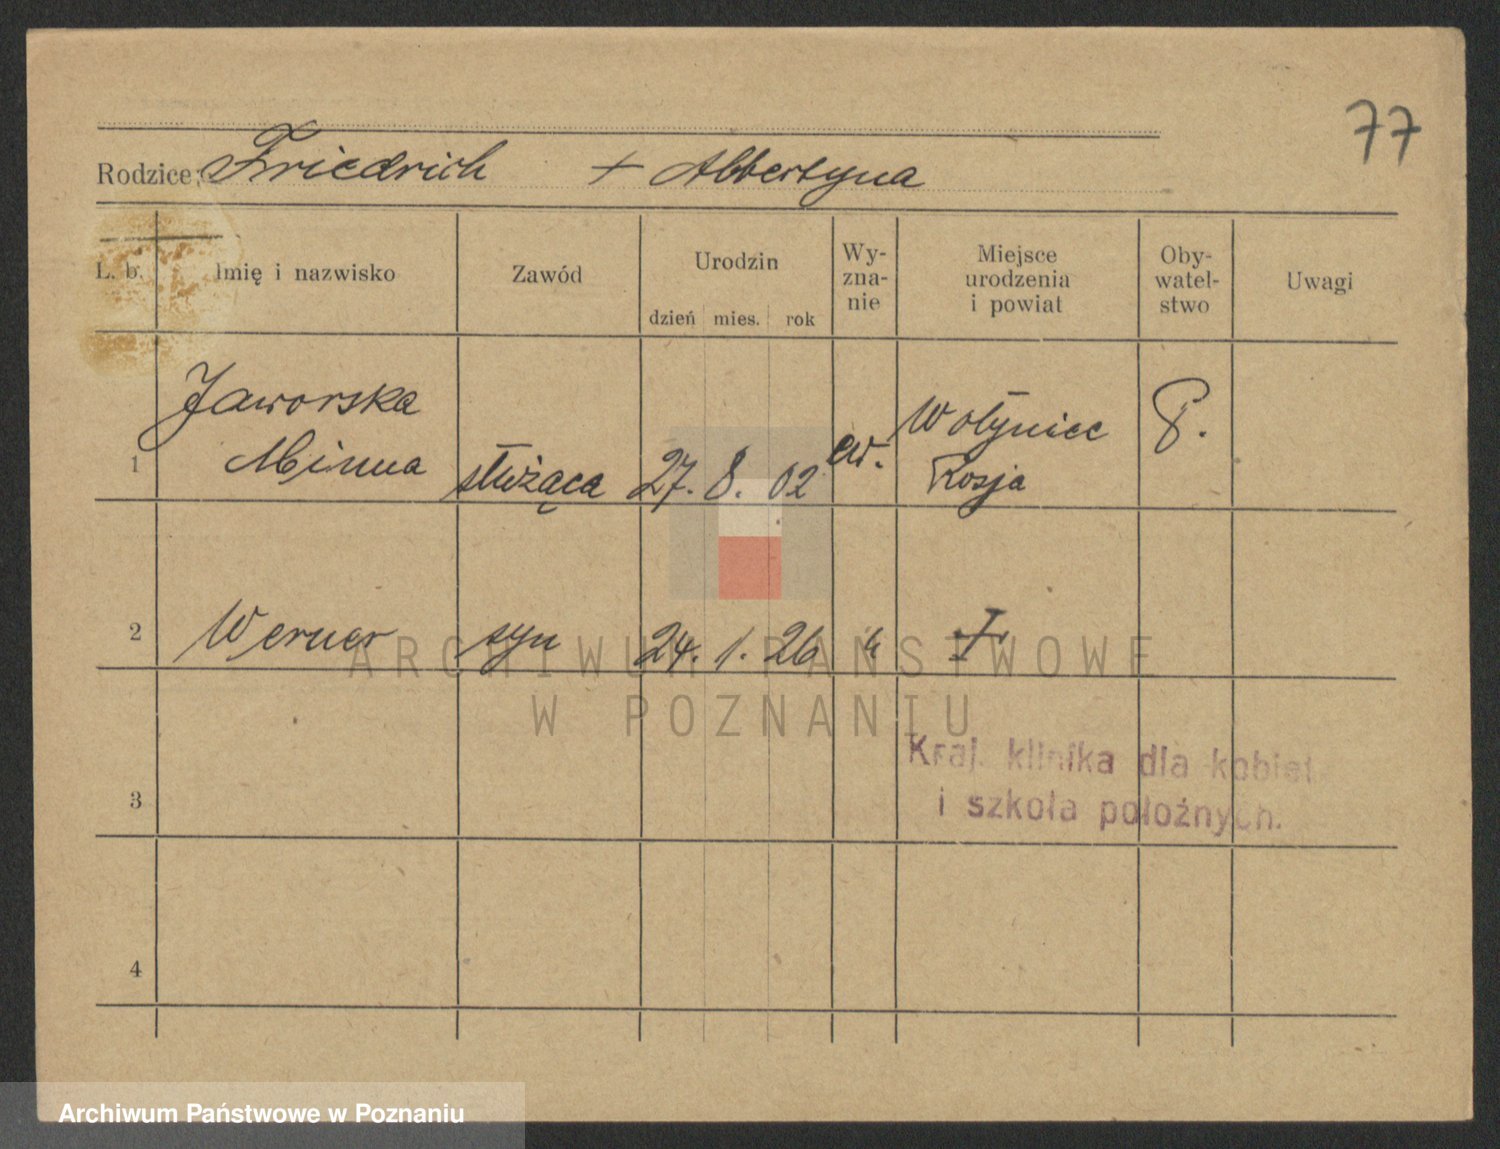 77
Rodzice: Friedrich + Albertyna
L. b. Imię i nazwisko Zawód Urodzin dzień mies. rok Wy-zna-nie Miejsce urodzenia i powiat Oby-watel-stwo Uwagi
Jaworska
1 Minna służąca 27. 8. 02 ew. Wołyniec Rosja
2 Werner syn 24. 1. 26 "
ARCHIWUM PAŃSTWOWE
W POZNANIU
Kraj. klinika dla kobiet
i szkoła położnych.
3
4
Archiwum Państwowe w Poznaniu